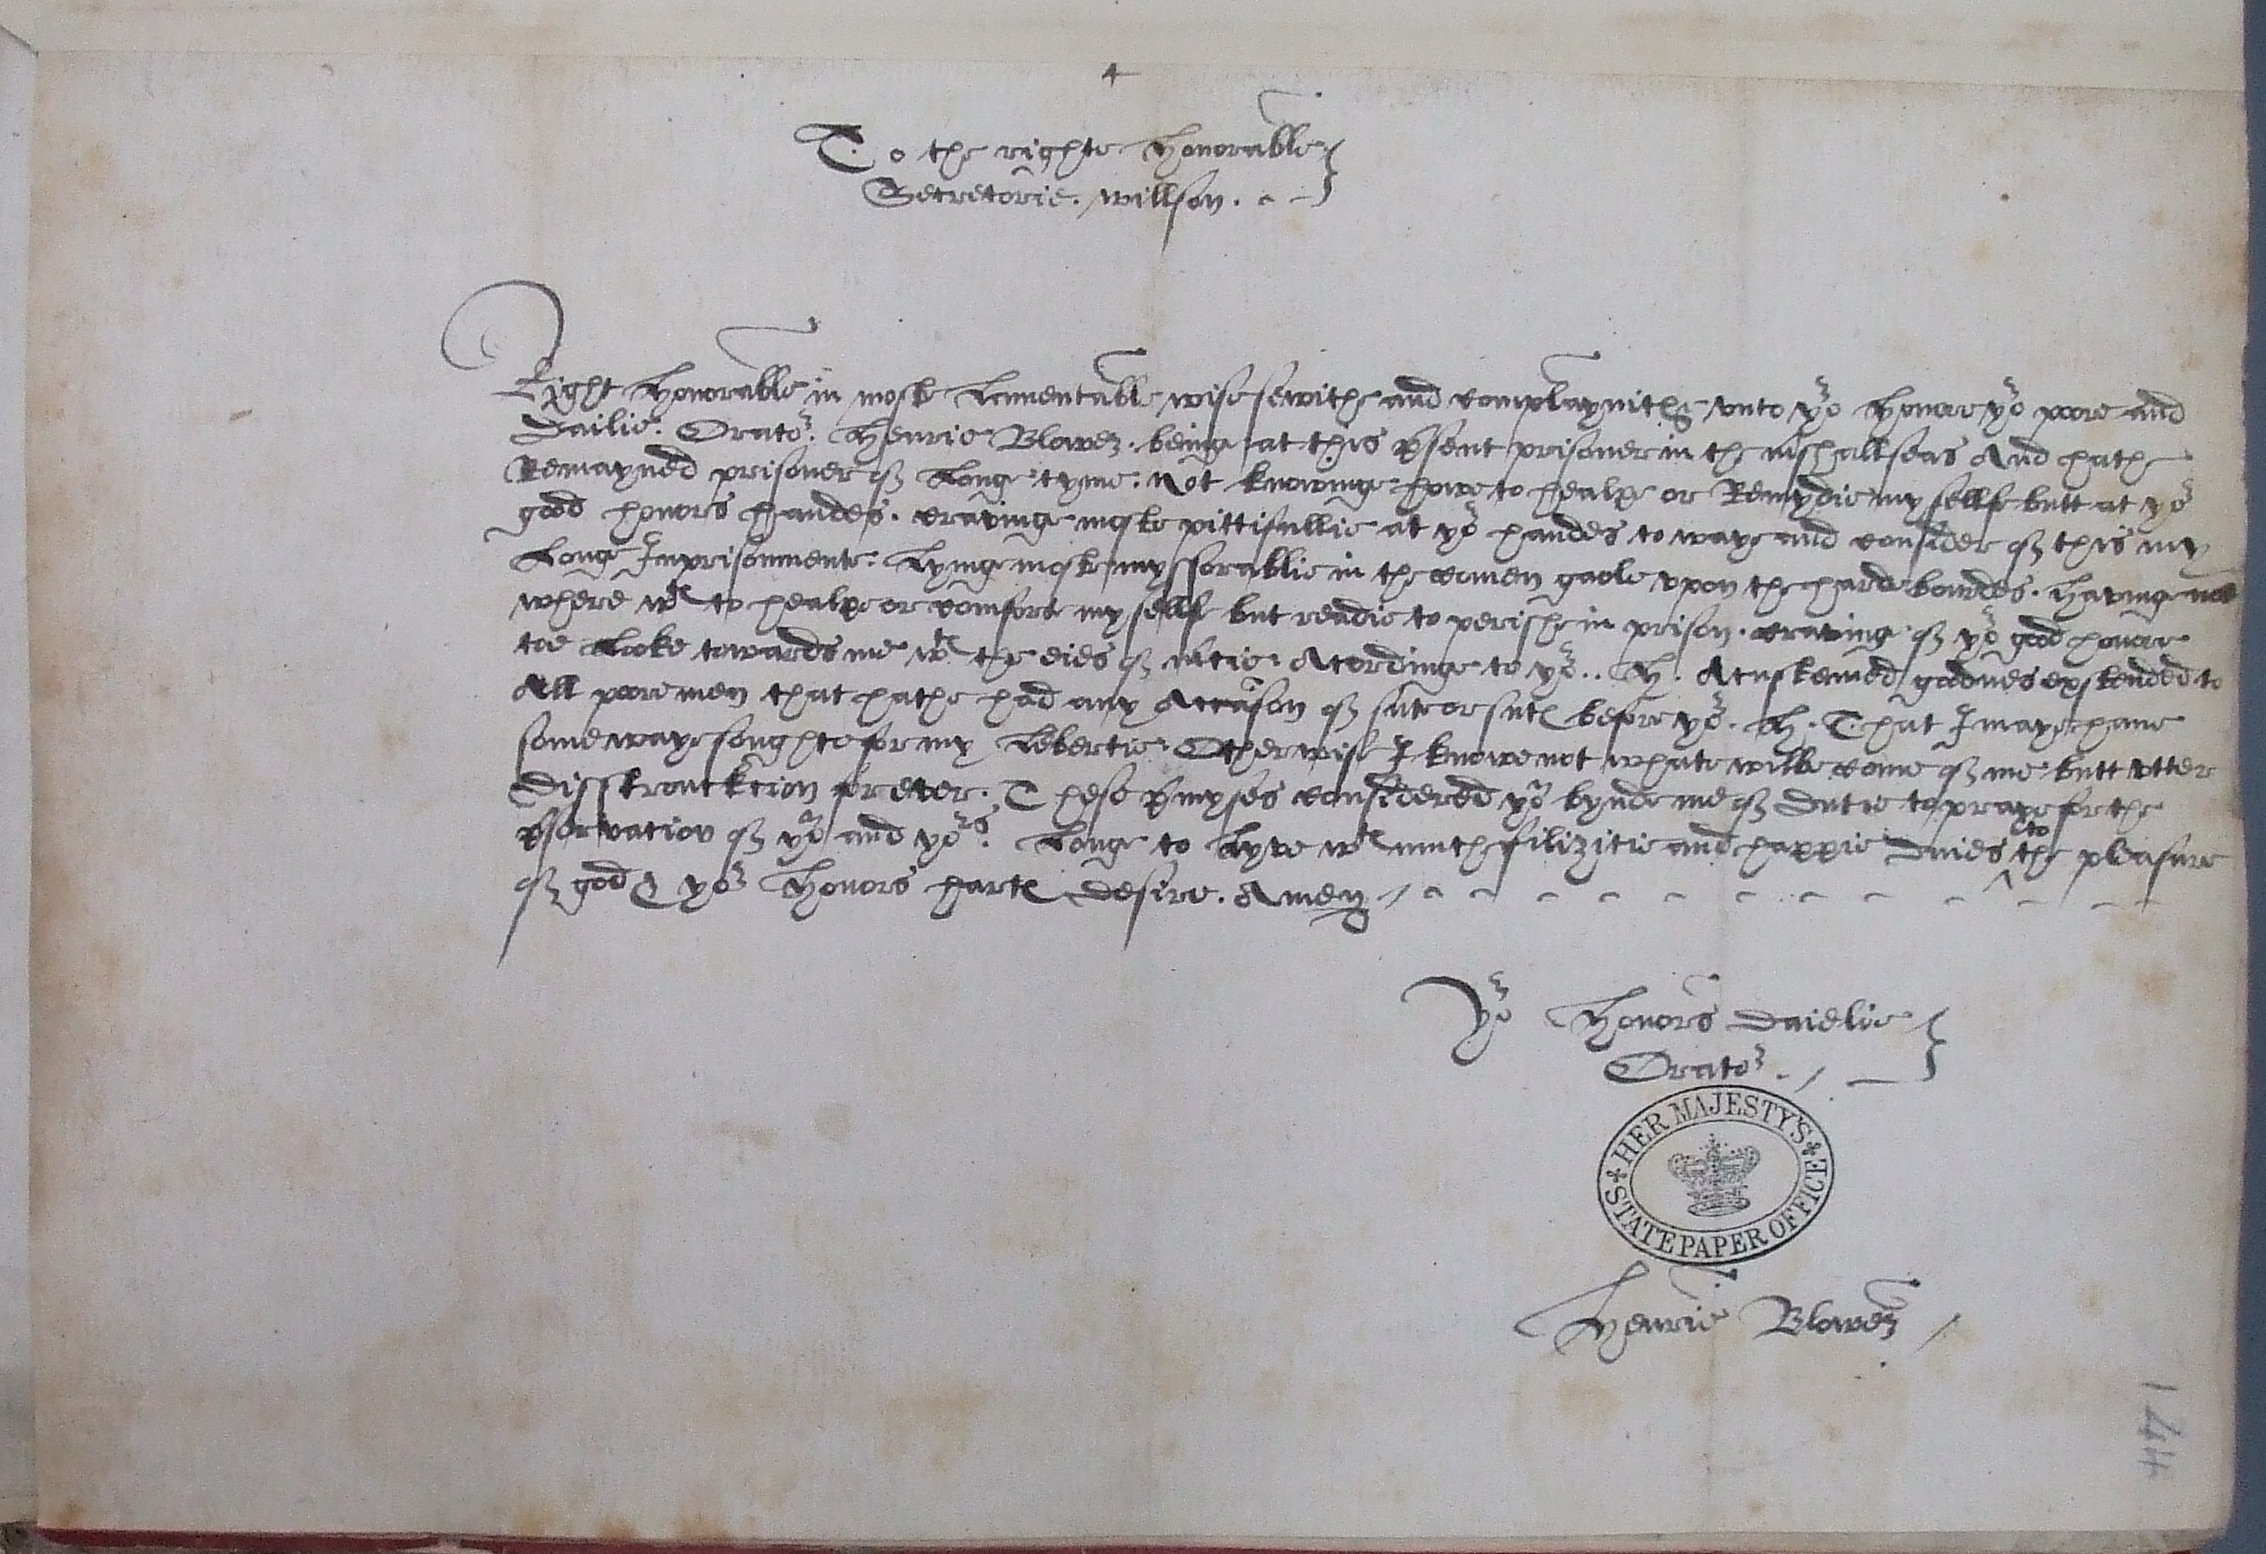 4
To the righte Honorable
Secretorie. willson.
Right Honorable in moste Lamentable wise sewithe and complaynithe vnto yor Honore yor pore and
Dailie. Orator. Henrie Blower. being at this psent prisoner in the mshallseas And hathe
Remayned prisoner of Longe tyme. Not knowinge howe to healpe or Remydie my sellfe butt at yor
good honors handes. craving moste pittifullie at yor handes to waye and consider of this my
Longe Imprisonmente. Lying moste myssorablie in the comen gaole vpon the harde bourdes. Having not
where wth to healpe or comfort my sellfe but readie to perishe in prison. craving of yor good honore
toe Looke towards me wth the eies of mcie. Acordinge to yor.. H. Acustemed goodnes exstended to
All pore men that hathe had any Accason of sute or sutes before yor. H. That I maye have
some waye soughte for my Lebertie. Otherwise I knowe not whate wilbe come of me butt vtter
Disstroucktion for ever. These pmyses considered yor bynde me of Dutie to praye for the
pservation of yor and yors. Longe to Lyve wth muche filizitie and happie Daies to the pleasure
of god & yor Honors hartes Desire. Amen
Yor Honors Daielie
Orator.
HER MAJESTY'S STATE PAPER OFFICE
Henrie Blower
144